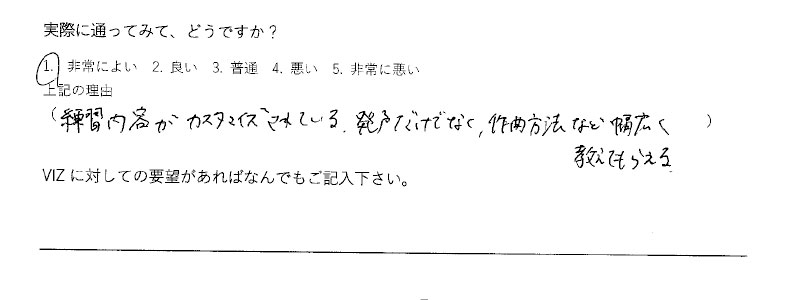 実際に通ってみて、どうですか？
1. 非常によい 2. 良い 3. 普通 4. 悪い 5. 非常に悪い
上記の理由
(練習内容が カスタマイズされている、発声だけでなく、作曲方法など幅広く )
教えてもらえる
VIZ に対しての要望があればなんでもご記入下さい。